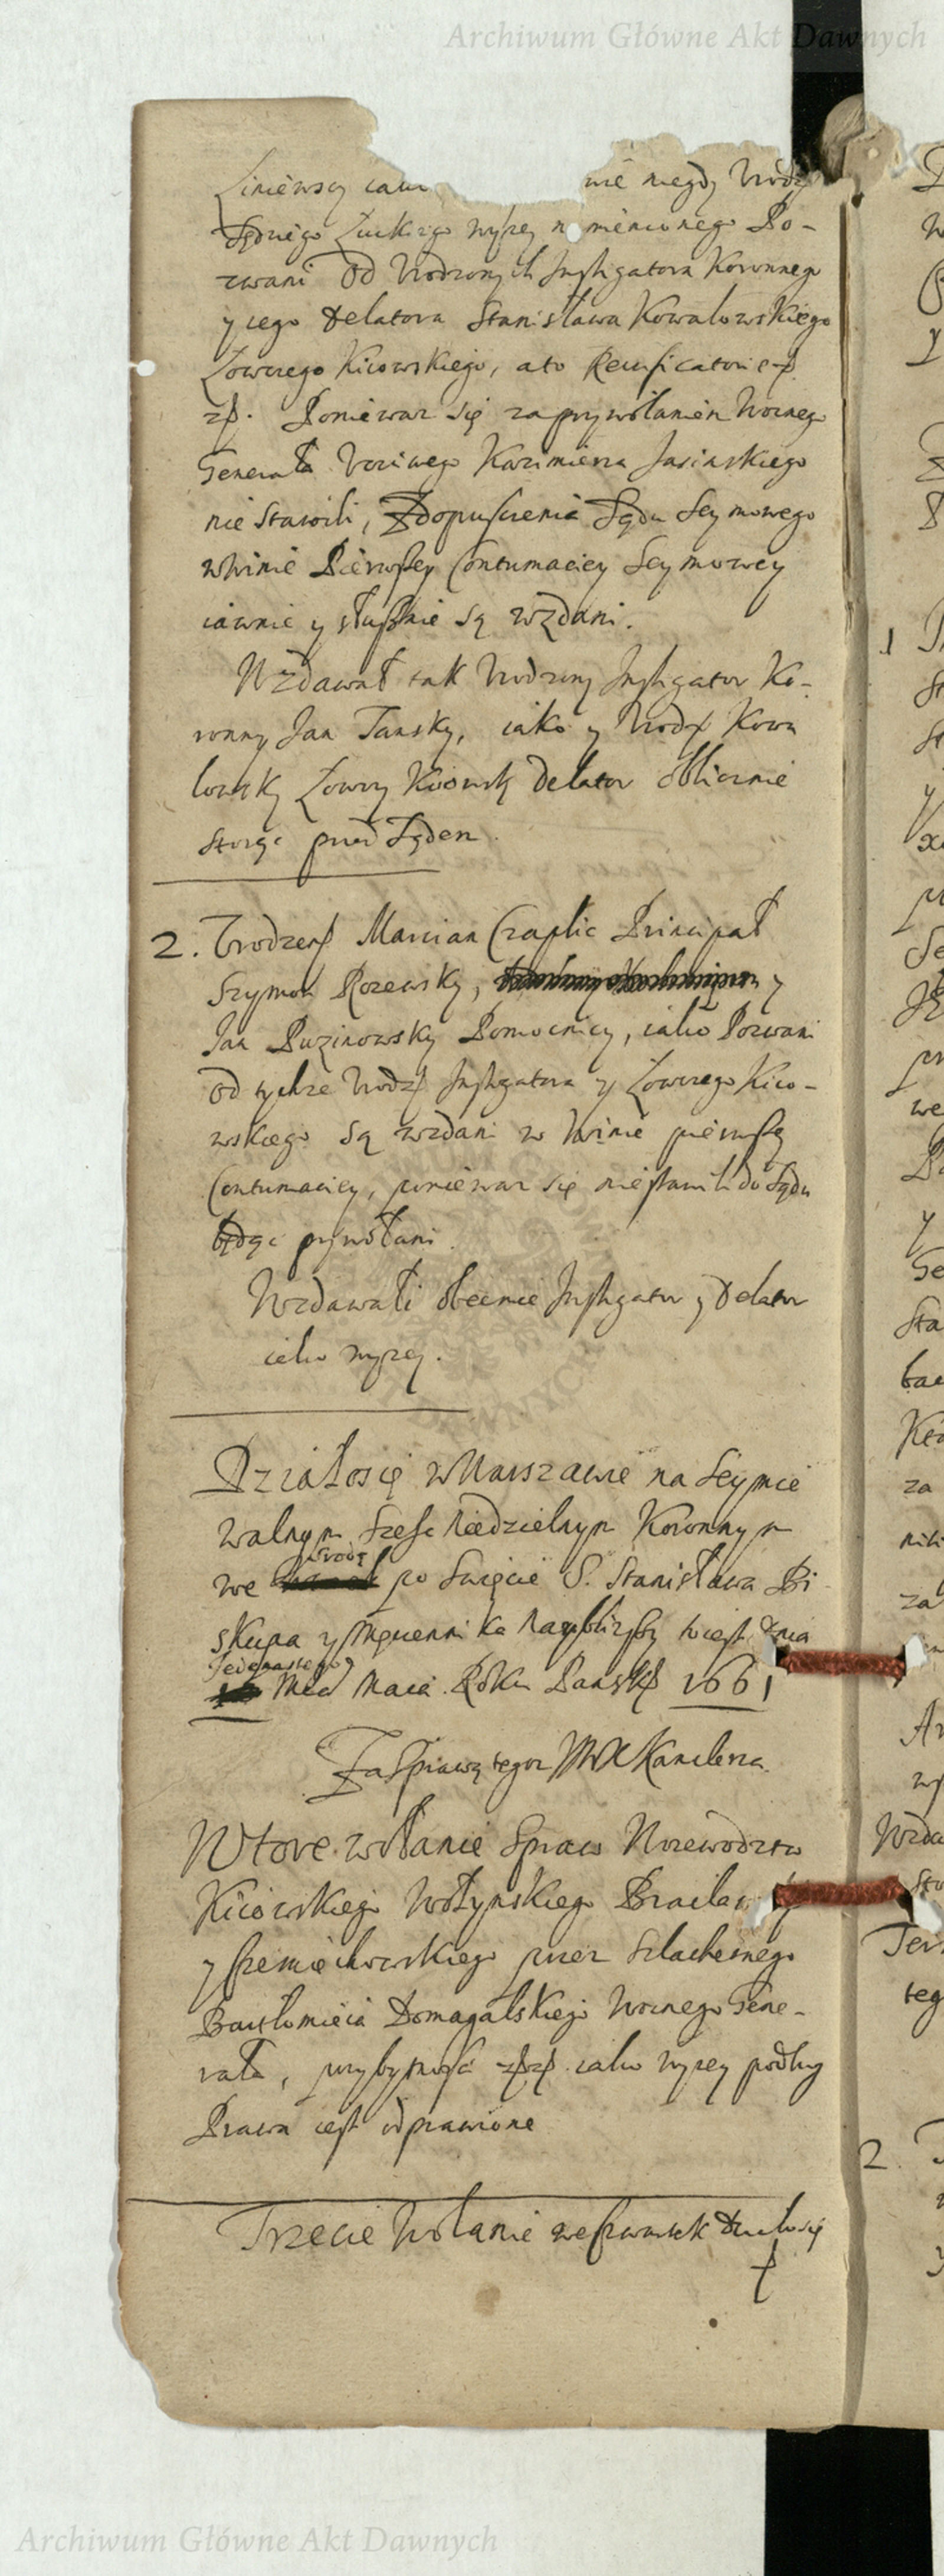 Archiwum Główne Akt Dawnych
Liniewscy nie niegdy Urodz
Sędziego Łuckiego wyżey nomienionego Po-
zwani Od Urodzonych Instigatora Koronnego
y iego Delatora Stanisława Kowalowskiego
Łowczego Kiiowskiego, a to
Ponieważ się za przywołaniem Woznego
Generała Kazimierza Jasinskiego
nie stawili, Z dopuszczenia Sędu Seymowego
w winie Pierwszey Contumaciey Seymowey
iawnie y słusznie są wzdani.
Wzdawał tak Urodzony Instigator Ko-
ronny Jan Tansky, iako y Urodz Kowa
lowsky Łowczy Kiowsky Delator oblicznie
stoiąc przed Sądem.
2. Urodzeni Marcian Czaplic Principał
Szymon Rozewsky, y
Jan Puzinowsky Pomocnicy, iako Pozwani
Od tychże Urodz Instigatora y Łowczego Kiio-
wskiego są wzdani w winie pierwszey
Contumaciey, ponieważ się nie stawili do Sądu
będąc przywołani.
Wzdawali obecnie Instigator y Delator
iako wyzey.
Działo się w Warszawie na Seymie
walnym Sześć Niedzielnym Koronnym
we srodę po Swięcie S. Stanisława Bi-
skupa y Męczennika naybliższy to iest dnia
Jedenastego Mca Maia Roku Pansk 1661
Za Sprawą tegoz JMX Kanclerza.
Wtore wołanie Spraw Woiewodztw
Kiiowskiego Wołynskiego Bracław
y Czerniechowskiego przez Szlachetnego
Bartłomieia Domagalskiego Woznego Gene-
rała, przy bytności iako wyzey podług
Prawa iest odprawione
Trzecie Wołanie we Czwartek Działo się
1
2
Archiwum Główne Akt Dawnych